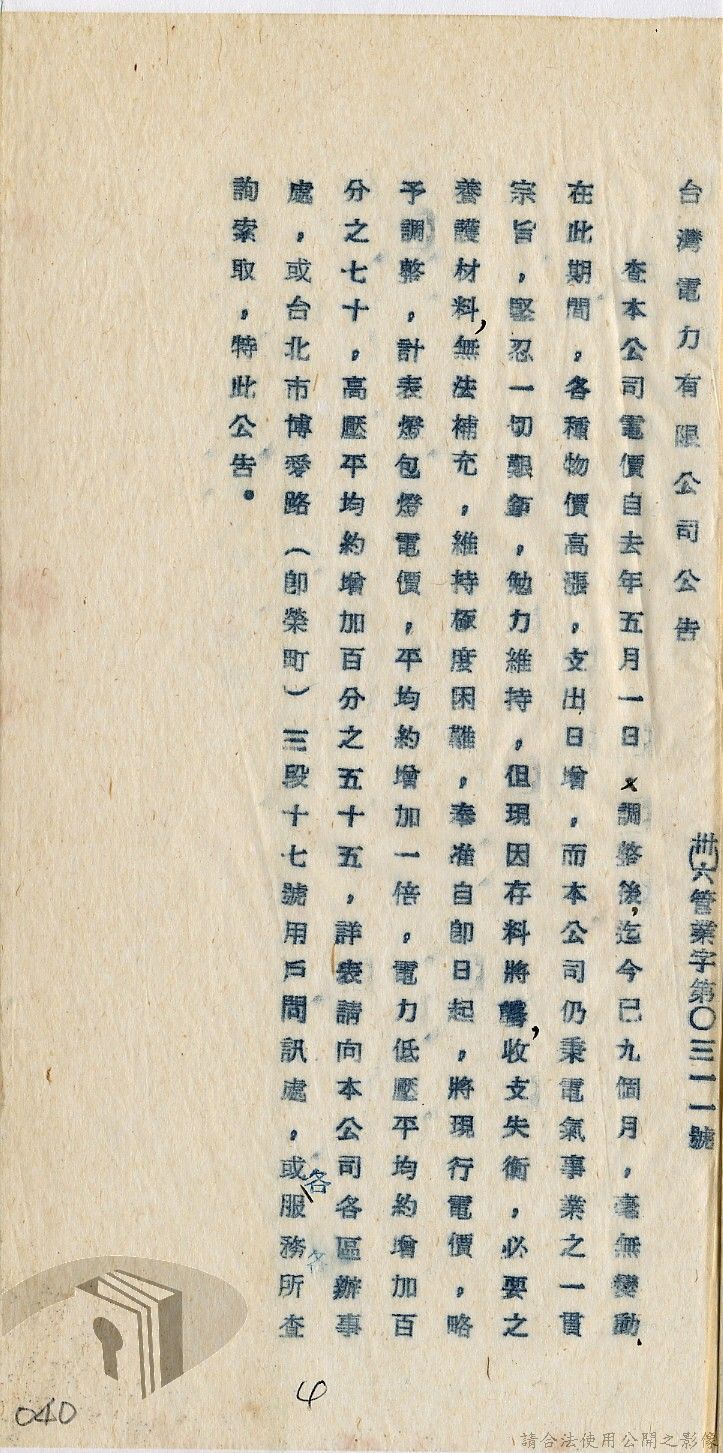 台灣電力有限公司公告
卅六管業字第〇三一一號
查本公司電價自去年五月一日調整後，迄今已九個月，毫無變動
在此期間，各種物價高漲，支出日增，而本公司仍秉電氣事業之一貫
宗旨，堅忍一切艱，勉力維持，但現因存料將，收支失衡，必要之
養護材料，無法補充，維持極度困難，奉准自即日起，將現行電價，略
予調整，計表燈包燈電價，平均約增加一倍，電力低壓平均約增加百
分之七十，高壓平均約增加百分之五十五，詳表請向本公司各區辦事
處，或台北市博愛路（即榮町）三段十七號用戶問訊處，或各服務所查
詢索取，特此公告。
各
4
040
請合法使用公開之影像